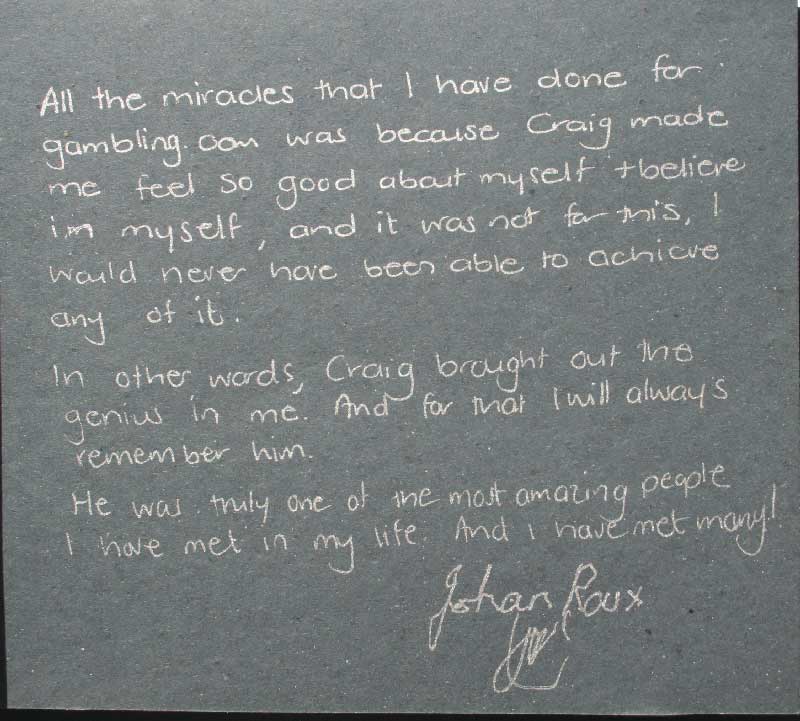 All the miracles that I have done for
gambling.com was because Craig made
me feel so good about myself + believe
in myself, and it was not for this, I
would never have been able to achieve
any of it.
In other words, Craig brought out the
genius in me. And for that I will always
remember him.
He was truly one of the most amazing people
I have met in my life. And I have met many!
Johan Roux